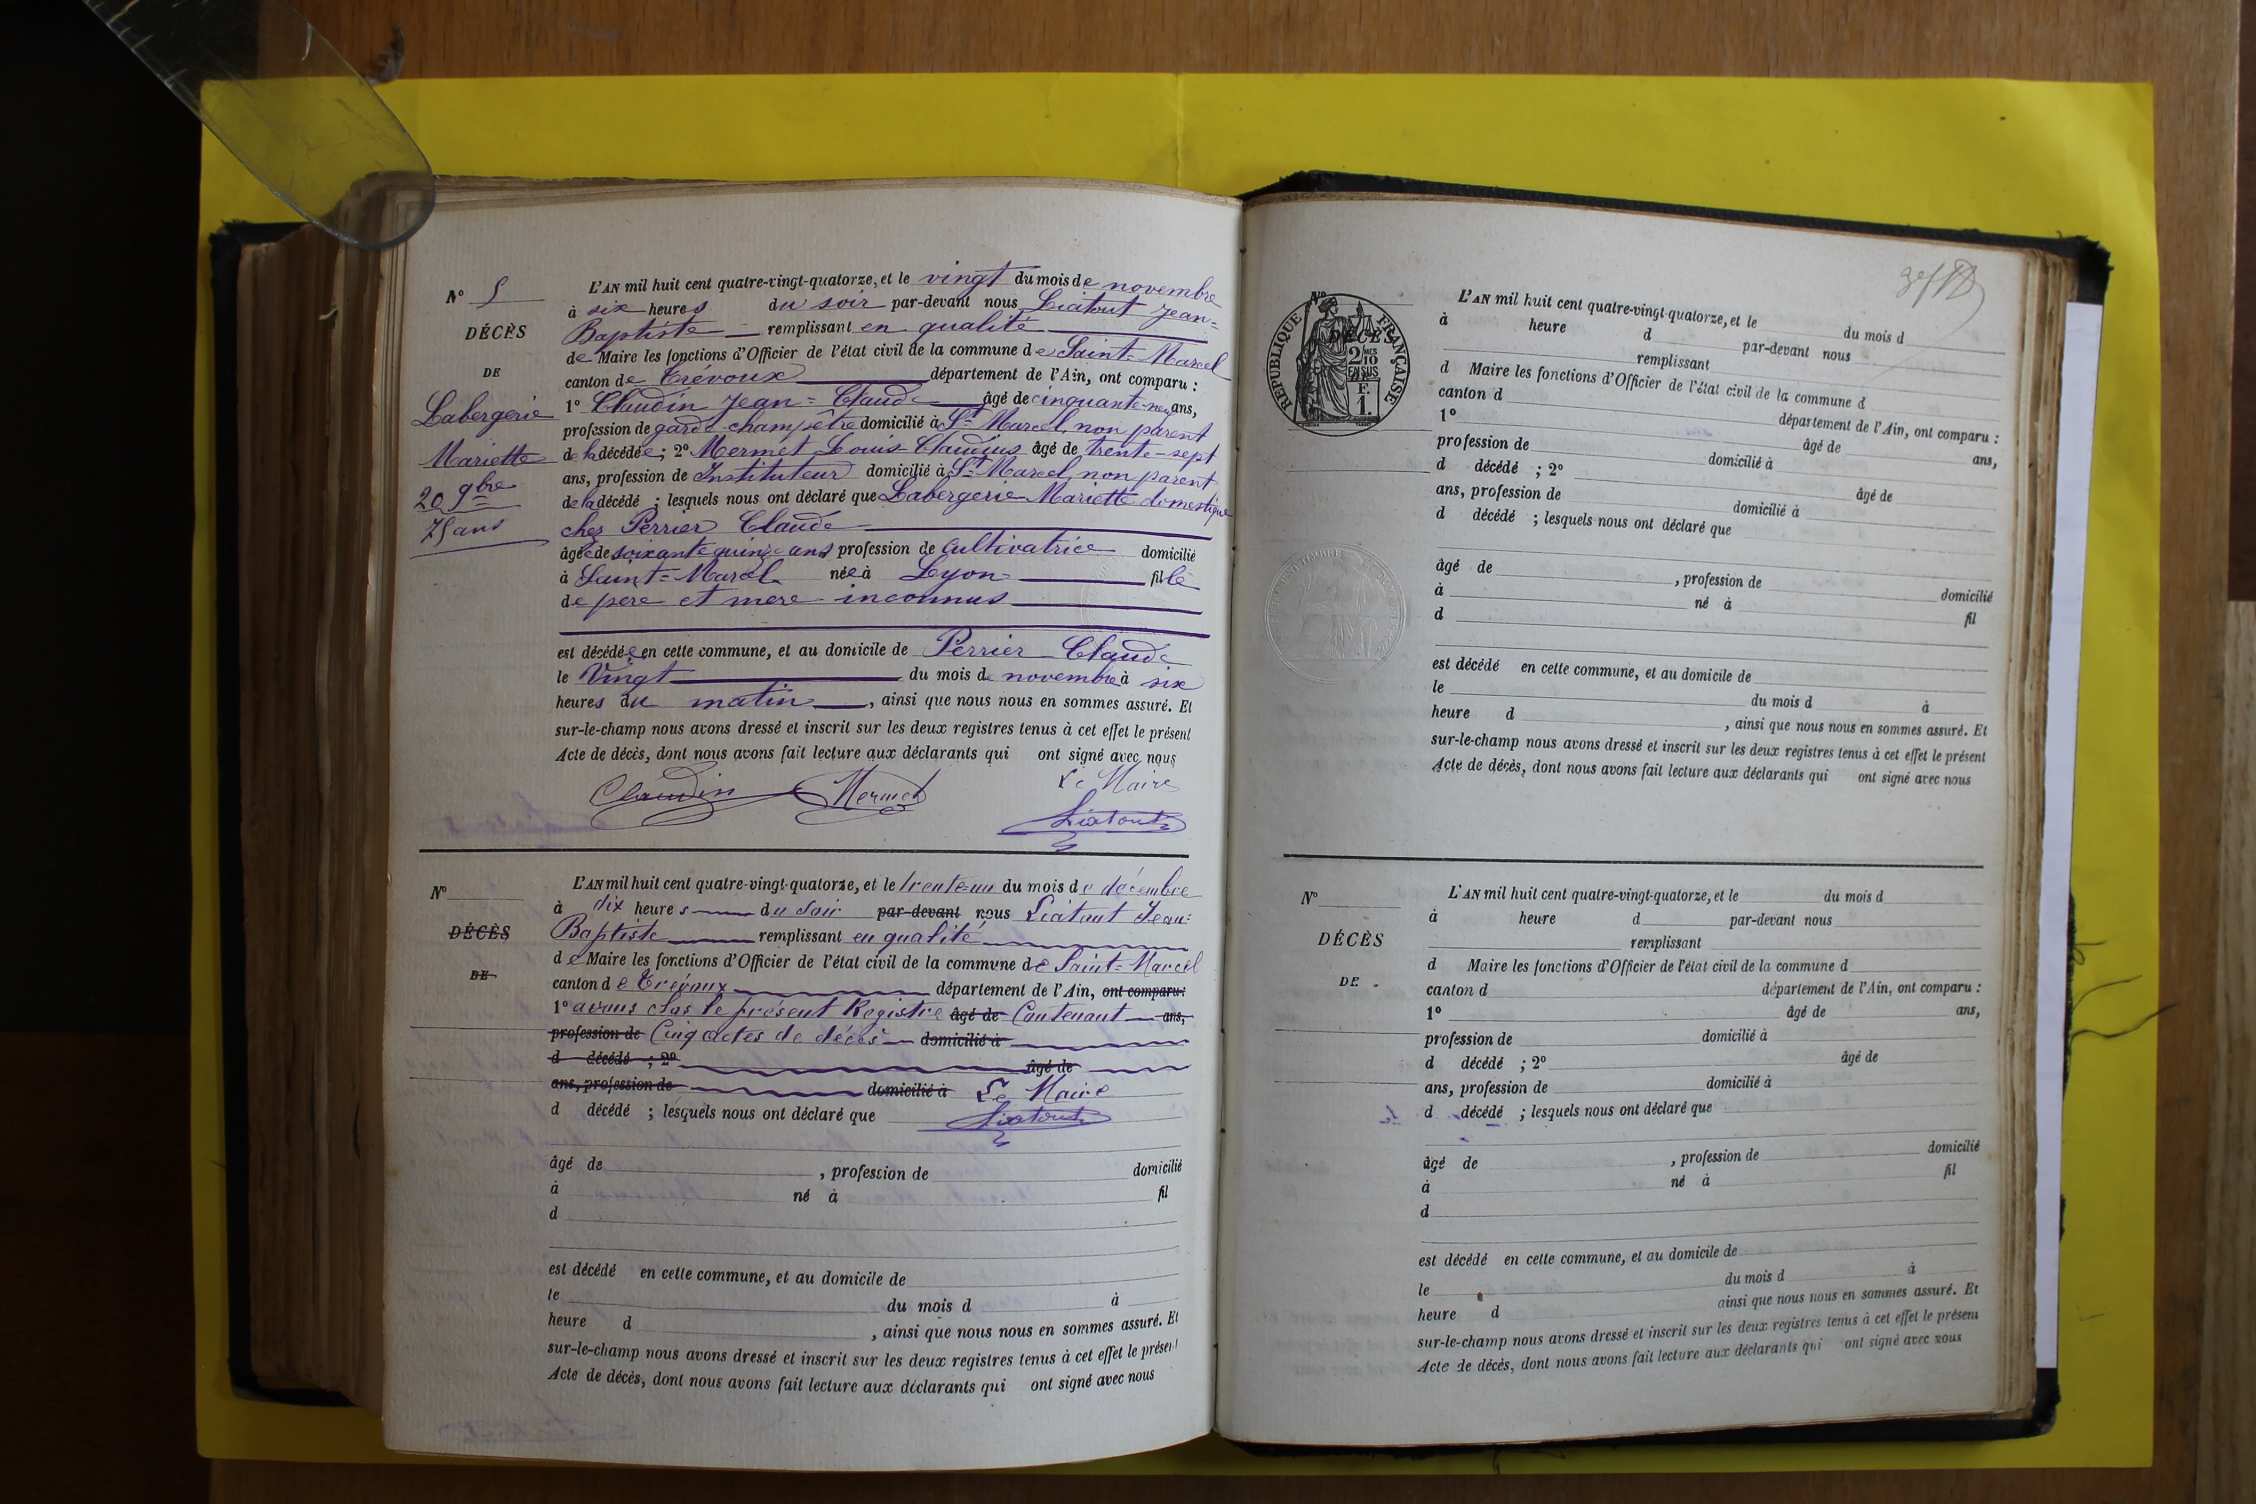 N° 5
DÉCÈS
DE
Labergerie
Mariette
20 9bre
75 ans
L'AN mil huit cent quatre-vingt-quatorze, et le vingt du mois de novembre
à six heures du soir par-devant nous Liatout Jean=
Baptiste remplissant en qualité
de Maire les fonctions d'Officier de l'état civil de la commune de Saint-Marcel
canton de Trévoux département de l'Ain, ont comparu :
1° Claudin Jean=Claude âgé de cinquante-neuf ans,
profession de garde-champêtre domicilié à St Marcel, non parent
de la décédée ; 2° Mermet Louis Claudius âgé de trente-sept
ans, profession de Instituteur domicilié à St Marcel, non parent
de la décédé ; lesquels nous ont déclaré que Labergerie Mariette domestique
chez Perrier Claude
âgée de soixante quinze ans profession de cultivatrice domicilié
à Saint=Marcel née à Lyon fille
de père et mère inconnus
est décédée en cette commune, et au domicile de Perrier Claude
le Vingt du mois de novembre à six
heures du matin, ainsi que nous nous en sommes assuré. Et
sur-le-champ nous avons dressé et inscrit sur les deux registres tenus à cet effet le présent
Acte de décès, dont nous avons fait lecture aux déclarants qui ont signé avec nous
Claudin Mermet Le Maire
Liatout
N°
DÉCÈS
DE
L'AN mil huit cent quatre-vingt-quatorze, et le trente-un du mois de décembre
à dix heures du soir par-devant nous Liatout Jean=
Baptiste remplissant en qualité
de Maire les fonctions d'Officier de l'état civil de la commune de Saint=Marcel
canton de Trévoux département de l'Ain, ont comparu :
1° avons clos le présent Registre âgé de Contenant ans,
profession de Cinq actes de décès domicilié à
d décédé ; 2° âgé de
ans, profession de domicilié à Le Maire
d décédé ; lesquels nous ont déclaré que Liatout
âgé de , profession de domicilié
à né à fil
d
est décédé en cette commune, et au domicile de
le du mois d à
heure d , ainsi que nous nous en sommes assuré. Et
sur-le-champ nous avons dressé et inscrit sur les deux registres tenus à cet effet le présent
Acte de décès, dont nous avons fait lecture aux déclarants qui ont signé avec nous
N°
DÉCÈS
RÉPUBLIQUE FRANÇAISE
2/10 MES
EN SUS
F.
1.
L'AN mil huit cent quatre-vingt-quatorze, et le du mois d
à heure d par-devant nous
remplissant
d Maire les fonctions d'Officier de l'état civil de la commune d
canton d département de l'Ain, ont comparu :
1° âgé de ans,
profession de domicilié à
d décédé ; 2° âgé de
ans, profession de domicilié à
d décédé ; lesquels nous ont déclaré que
âgé de , profession de domicilié
à né à fil
d
est décédé en cette commune, et au domicile de
le du mois d à
heure d , ainsi que nous nous en sommes assuré. Et
sur-le-champ nous avons dressé et inscrit sur les deux registres tenus à cet effet le présent
Acte de décès, dont nous avons fait lecture aux déclarants qui ont signé avec nous
N°
DÉCÈS
DE
L'AN mil huit cent quatre-vingt-quatorze, et le du mois d
à heure d par-devant nous
remplissant
d Maire les fonctions d'Officier de l'état civil de la commune d
canton d département de l'Ain, ont comparu :
1° âgé de ans,
profession de domicilié à
d décédé ; 2° âgé de
ans, profession de domicilié à
d décédé ; lesquels nous ont déclaré que
âgé de , profession de domicilié
à né à fil
d
est décédé en cette commune, et au domicile de
le du mois d à
heure d ainsi que nous nous en sommes assuré. Et
sur-le-champ nous avons dressé et inscrit sur les deux registres tenus à cet effet le présent
Acte de décès, dont nous avons fait lecture aux déclarants qui ont signé avec nous